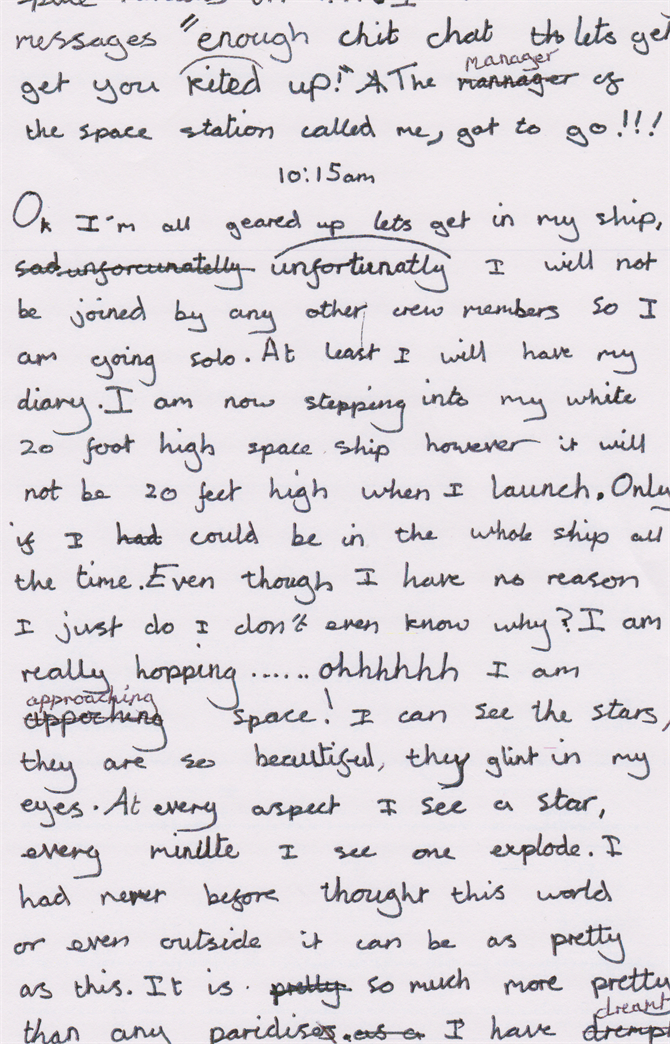 messages "enough chit chat th lets get
get you kited up!" A The mannager Manager of
the space station called me, got to go!!!
10:15am
Ok I'm all geared up lets get in my ship,
sad unforcunatelly unfortunatly I will not
be joined by any other crew members so I
am going solo. At least I will have my
diary. I am now stepping into my white
20 foot high space ship however it will
not be 20 feet high when I launch. Only
if I had could be in the whole ship all
the time. Even though I have no reason
I just do I don't even know why? I am
really hopping ...... ohhhhhh I am
approaching
appoching space! I can see the stars,
they are so beautiful, they glint in my
eyes. At every aspect I see a star,
every minute I see one explode. I
had never before thought this world
or even outside it can be as pretty
as this. It is pretty so much more pretty
dreamt
than any paridises. as a I have